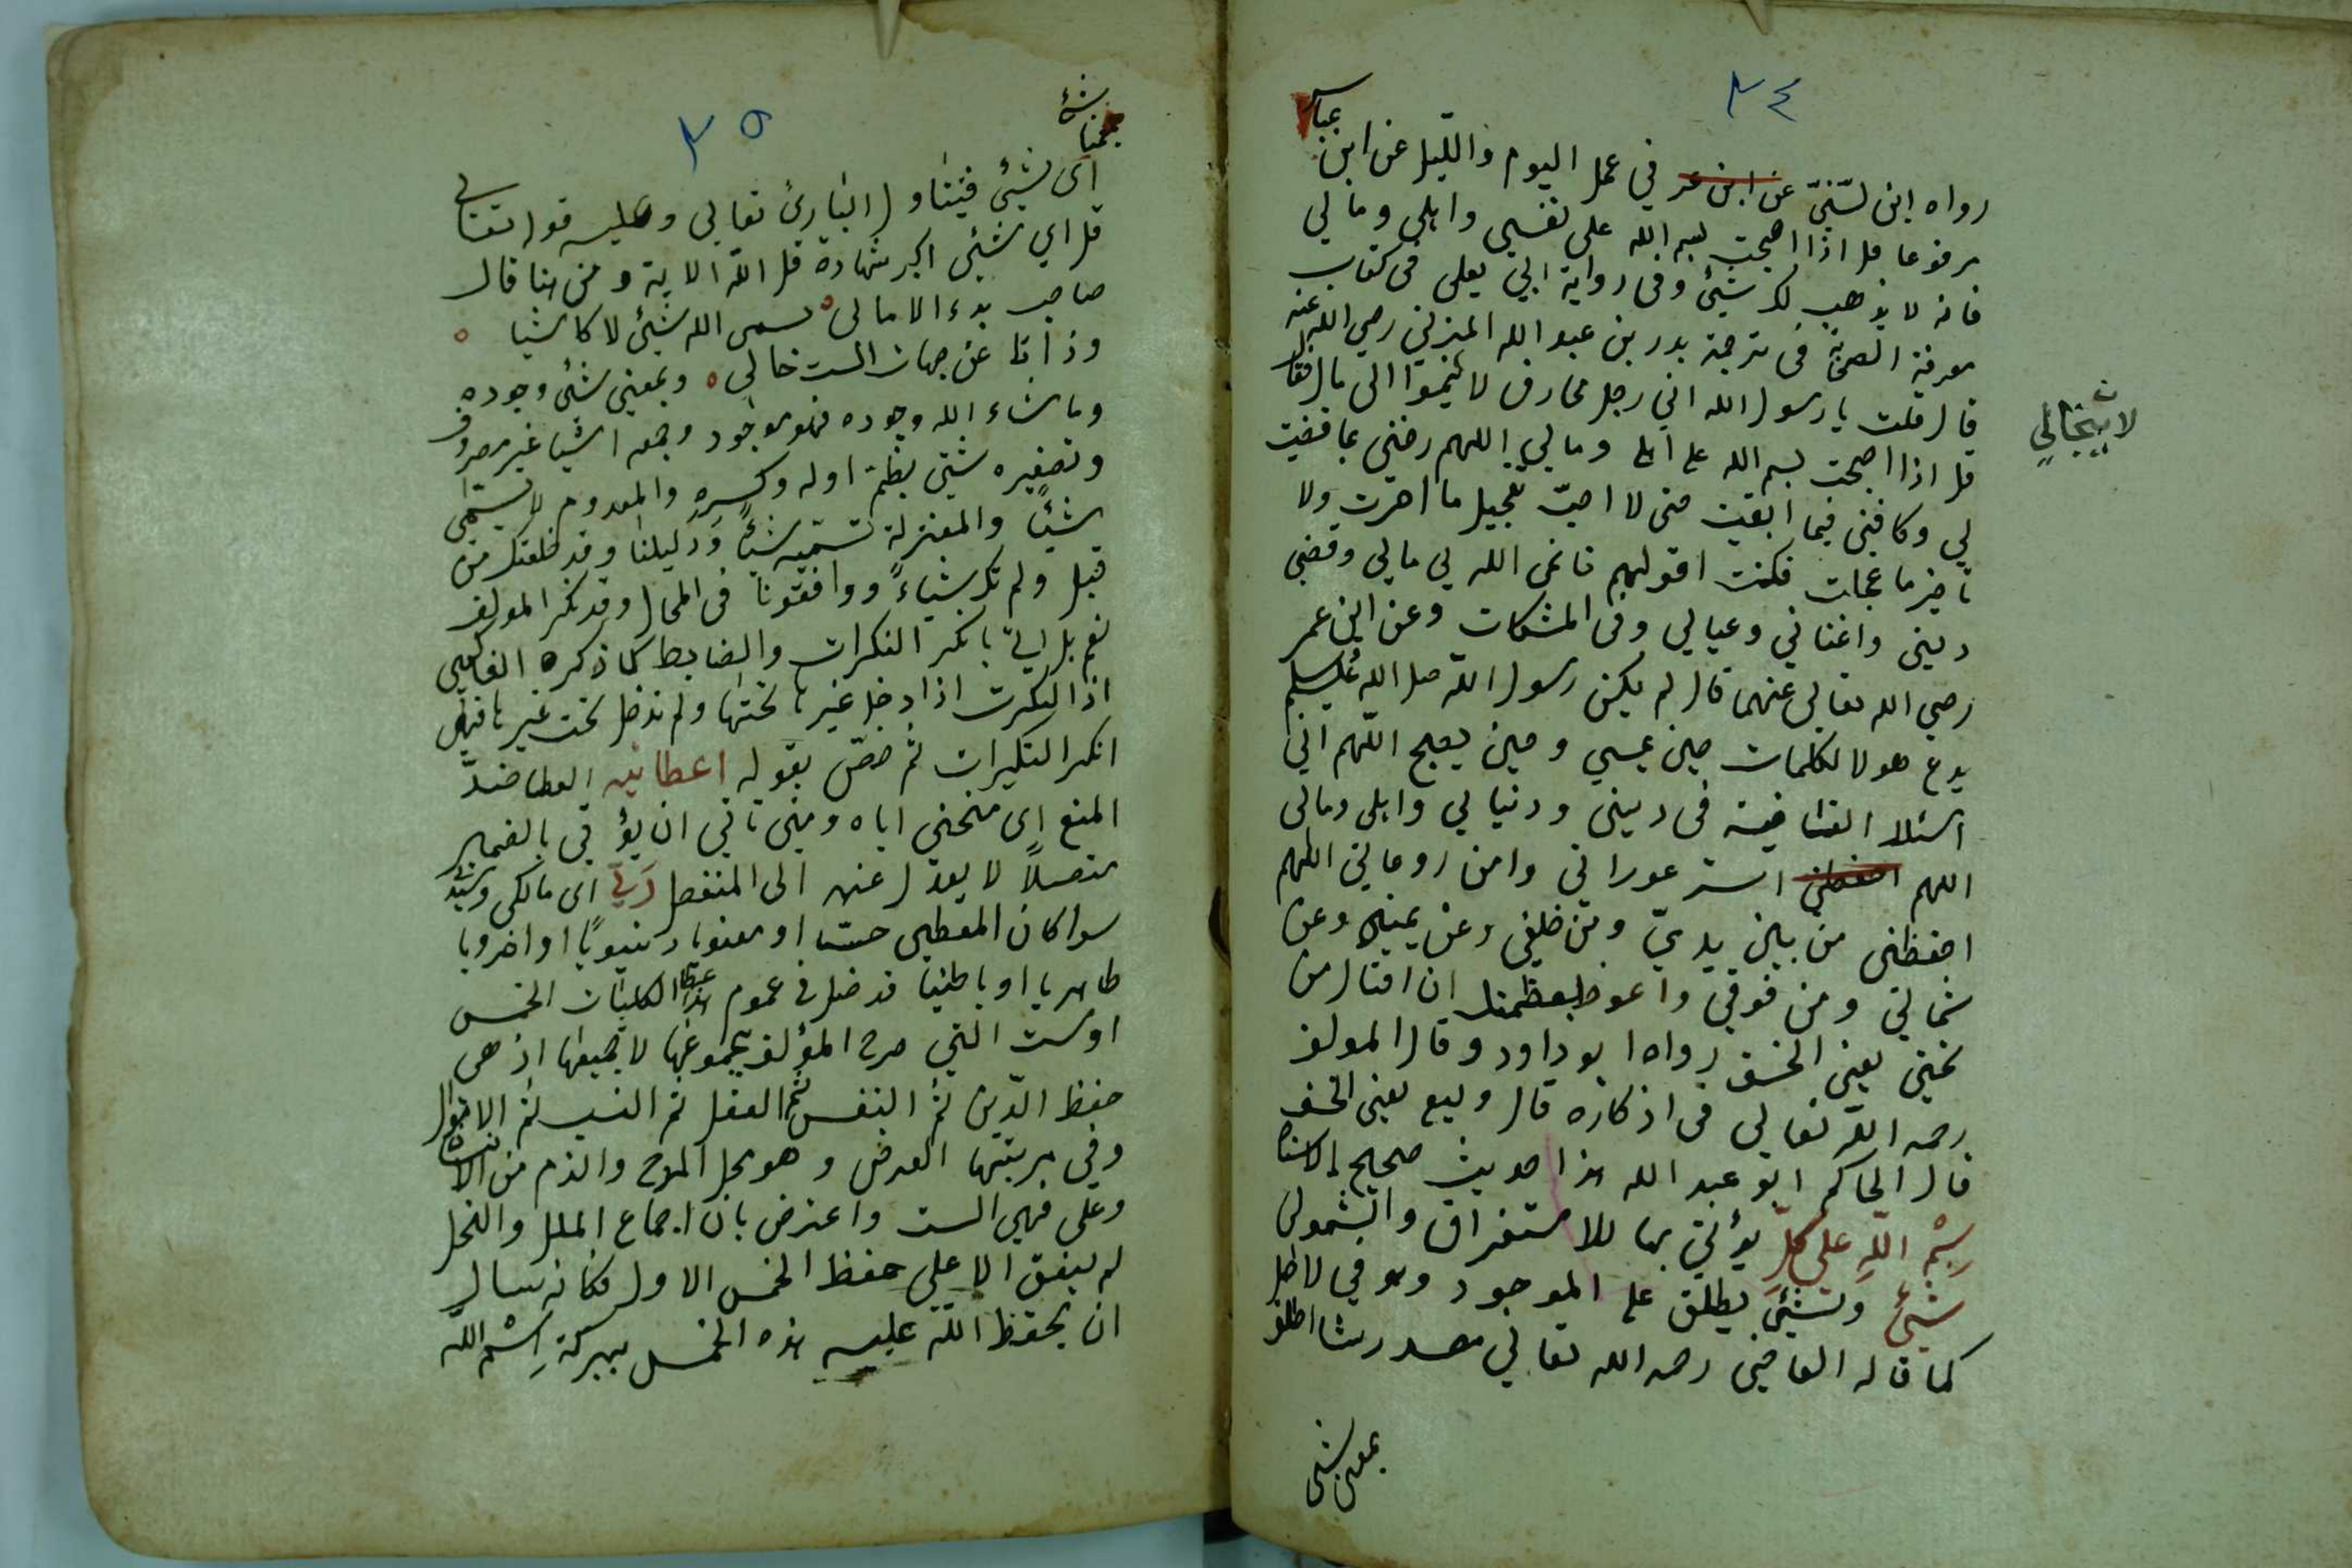 ٣٤
عباس
رواه ابن لسّنيّ عن ابن عمر في عمل اليوم والليل عن ابن
مرفوعا قل اذا اصبحت بسم الله على نفسي واهلي ومالي
فانه لا يذهب لك شيئ وفى رواية ابي يعلى فى كتاب
معرفة الصحابة فى ترجمة بدر بن عبد الله المزني رضي الله عنه
قال قلت يا رسول الله اني رجل محارف لا ينموا الى مال فقال
لا ينمي لي
قل اذا اصبحت بسم الله على اهلي ومالي اللهم رضني بما قضيت
لي وكافني فيما ابقيت حتى لا احبّ تعجيل ما اخرت ولا
تاخير ما عجلت فكنت اقولهم فانمى الله لي مالي وقضى
ديني واغناني وعيالي وفى المشكات وعن ابن عمر
رضي الله تعالى عنهما قال لم يكن رسول الله صلى الله عليه وسلم
يدع هولا لكلمات حين يمسي وحين يصبح اللهم اني
اسئلك العافية فى ديني ودنيا لي واهلي ومالى
اللهم احفظني استر عوراتي وامن روعاتي اللهم
احفظنى من بين يديّ ومن خلفي وعن يميني وعن
شمالي ومن فوقي واعوذ بعظمتك ان اغتال من
تحتي يعنى الخسف رواه ابو داود وقال المولف
رحمه الله تعالى فى اذكاره قال وكيع يعنى الخسف
قال الحاكم ابو عبد الله هذا حديث صحيح الاسناد
بِسْمِ اللهِ على كلِّ يؤتي بها للاستغراق والشمول
شيئ وشيئ يطلق على الموجود وهو في لاصل
كما قاله القاضي رحمه الله تعالى مصدر شا اطلق
بمعنى شئ
٣٥
شئ
بمعنى
اى شيئ فيتناول البارئ تعالى وعليه قوله تعالى
قل اي شيئ اكبر شهادة قل الله الاية ومن هنا قال
صاحب بدء الامالى ه نسمى الله شيئ لا كاشيا ه
وذاتا عن جهات الست خالي ه وبمعنى شئى وجوده
وما شاء الله وجوده فهو موجود وجمعه اشيا غير مصروف
وتصغيره شيئ بضم اوله وكسره والمعدوم لا يسمى
شيئا والمعتزلة تسميه شيئاً ودليلنا وقد خلقتك من
قبل ولم تك شيئاً ووافقونا فى المحال وقد نكر المولف
نعم بل اتى بانكر النكرات والضابط كما ذكره الفاكهي
اذ النكرت اذا دخل غيرها تحتها ولم تدخل تحت غيرها فهى
انكر النكيرات ثم خصّ بقوله اعطانيه العطا ضدّ
المنع اى منحني اياه ومتى تاتي ان يؤتي بالضمير
متصلاً لا يعدل عنه الى المنفصل رَبِّي اى مالكى وسيدى
سوا كان المعطى حسّا او معنويا دنيويًا او اخرويا
طاهريا او باطنيا فدخل في عموم هذا عطا الكليات الخمس
اوست التي صرح المؤلف بمجموعها لا بجميعها اذ هى
حفظ الدّين ثم النفس ثم العقل ثم النسب ثم الاموال
وفي مرتبتها العرض وهو محل المدح والذم من الانسان
وعلى فهي الست واعترض بان اجماع الملل والنحل
لم يتفق الا على حفظ الخمس الاول فكانه سال
ان يحفظ الله عليه هذه الخمس ببركة اسْم اللّه